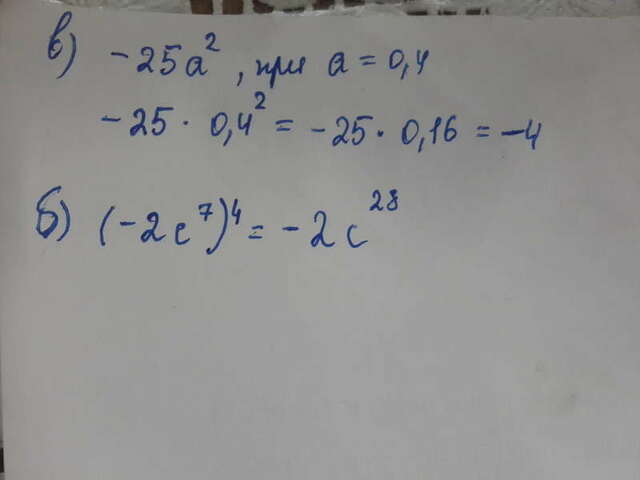 в) -25a², при a = 0,4
-25 · 0,4² = -25 · 0,16 = -4
б) (-2c⁷)⁴ = -2c²⁸